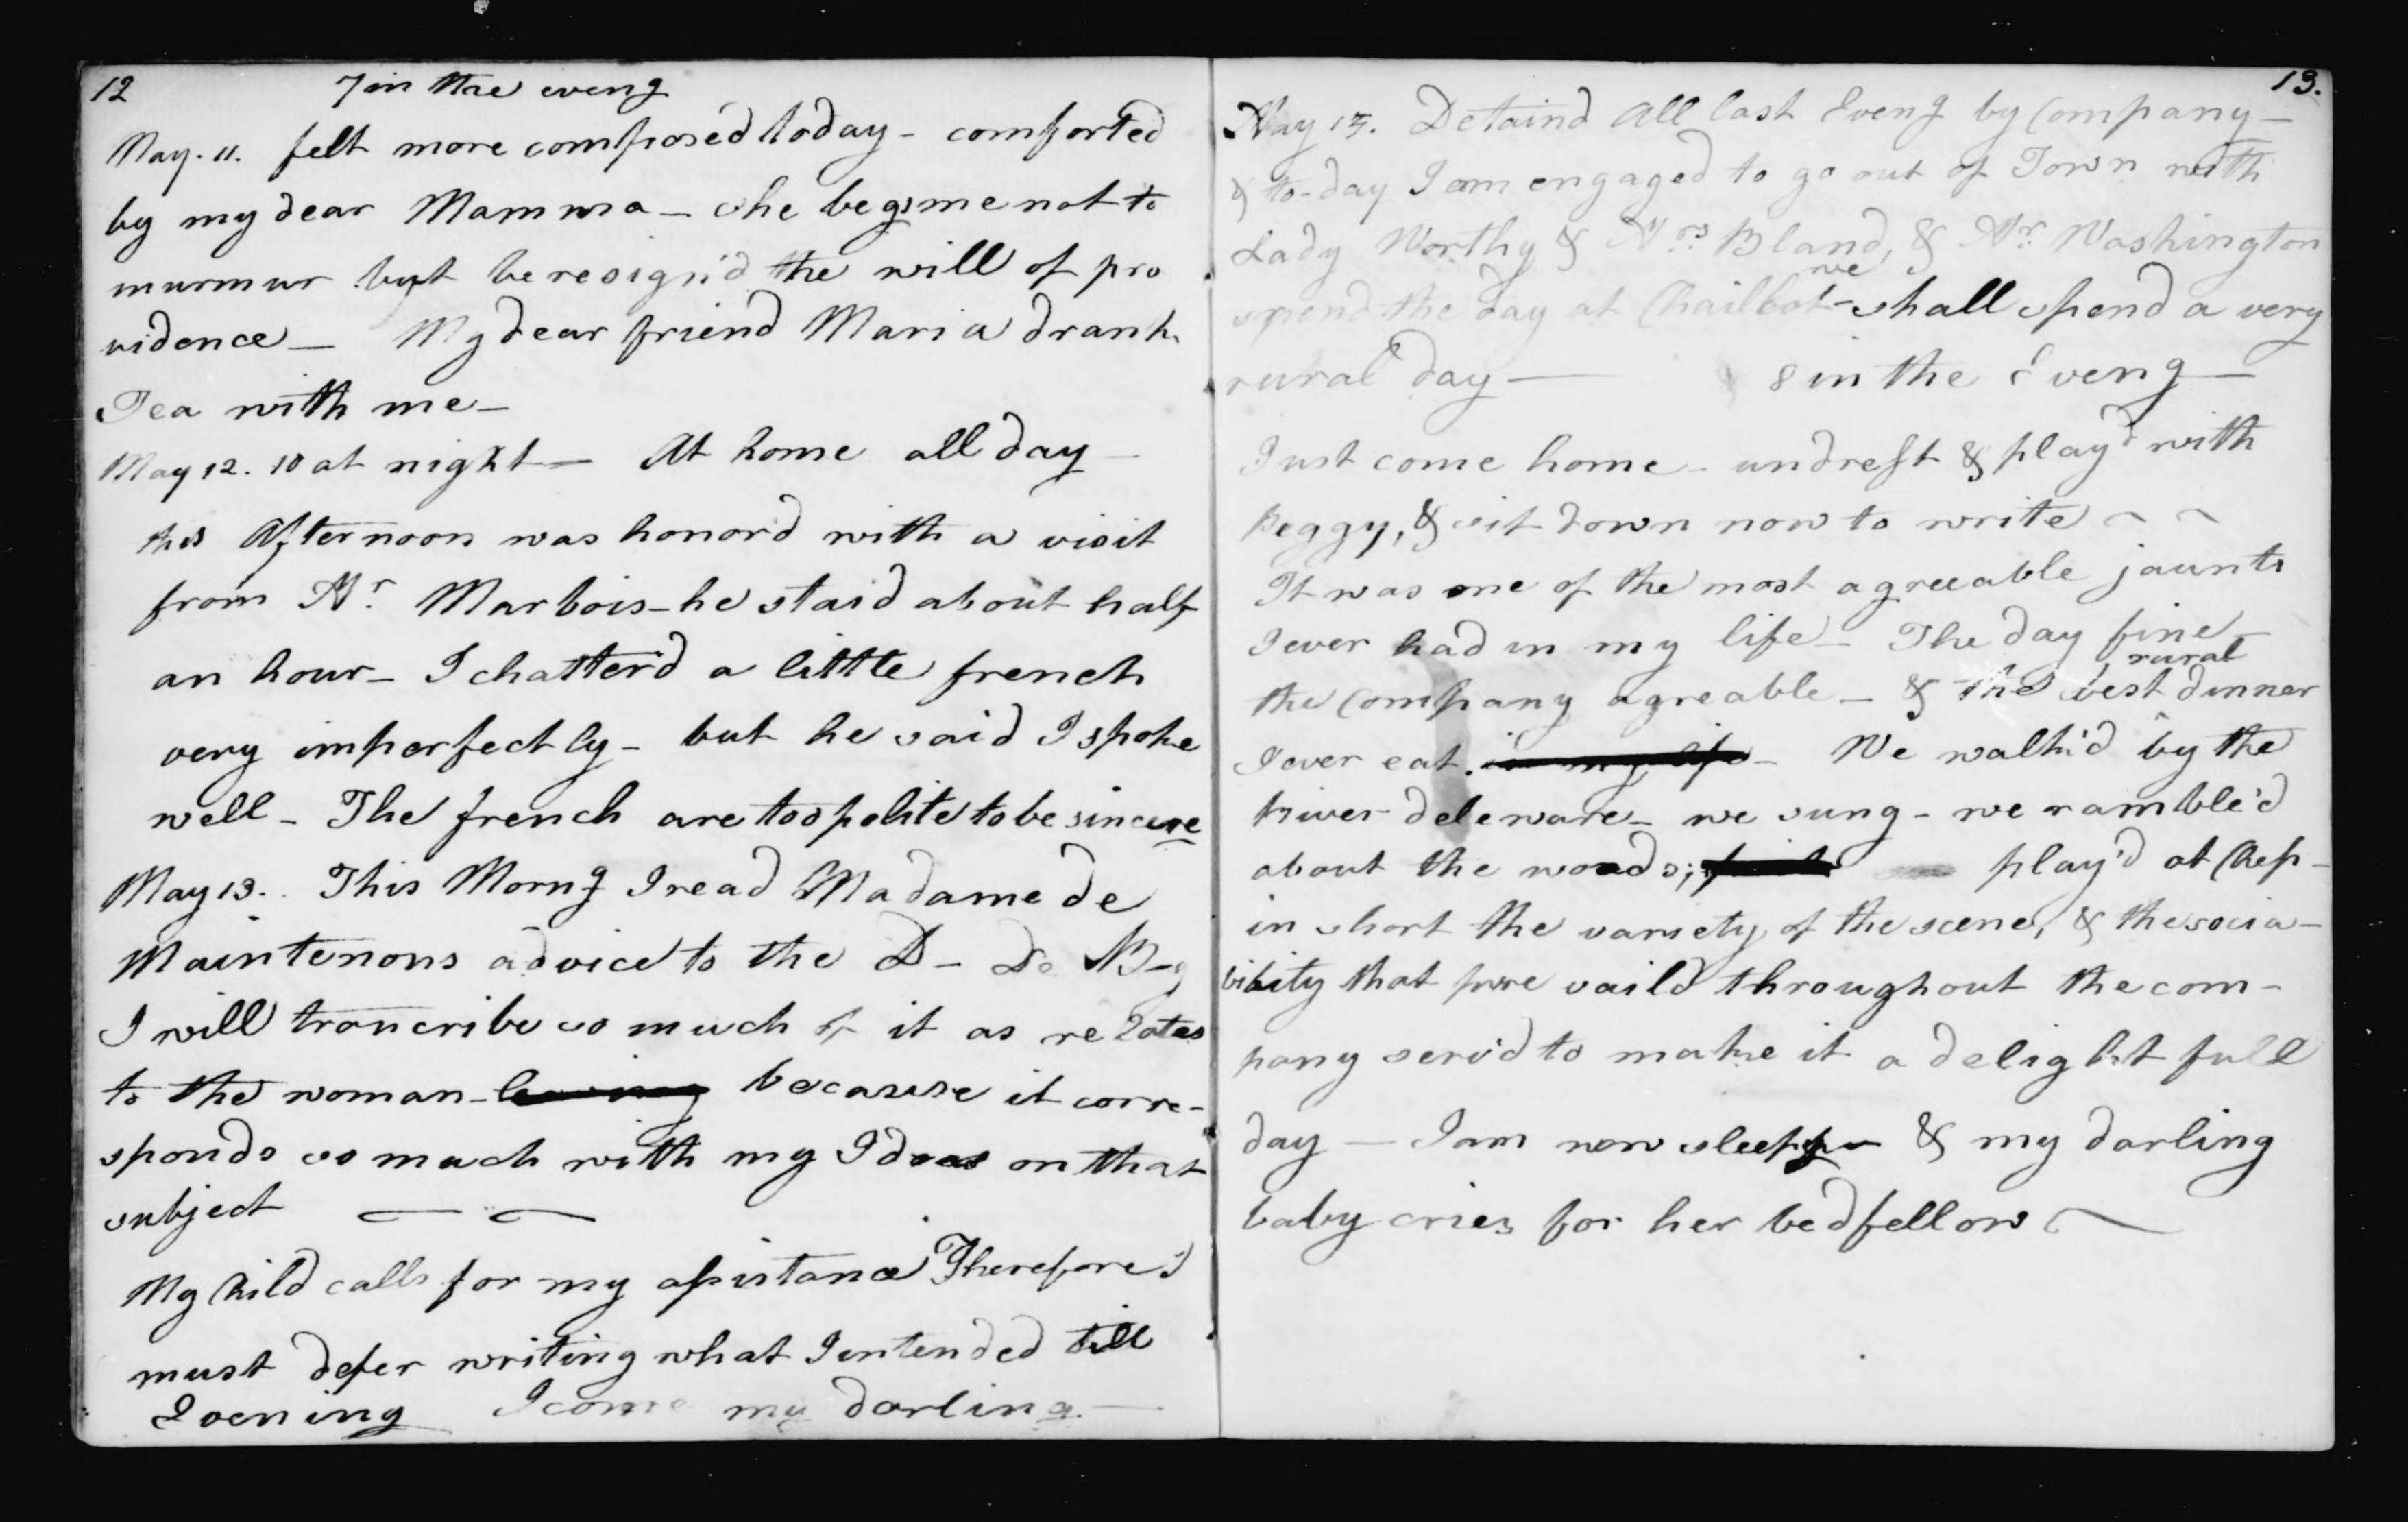 12
7 in the eveng
May. 11. felt more composed today - comforted
by my dear Mamma - she begs me not to
murmur but be resign'd the will of pro
vidence - My dear friend Maria drank
Tea with me -
May 12. 10 at night - At home all day -
this Afternoon was honor'd with a visit
from Mr. Marbois - he staid about half
an hour - I chatter'd a little french
very imperfectly - but he said I spoke
well - The french are too polite to be sincere
May 13. This Morng I read Madame de
Maintenons advice to the D - de B-g
I will trancribe so much of it as relates
to the woman - because it corre-
sponds so much with my Ideas on that
subject
My Child calls for my assistance Therefore I
must defer writing what I intended till
Evening I come my darling -
13.
May Detaind All last Eveng by Company -
& to-day I am engaged to go out of Town with
Lady Worthy & Mrs Bland, & Mr. Washington
spend the day at - we shall spend a very
rural day - 8 in the Eveng -
Just come home - undrest & play'd with
Peggy, & sit down now to write
It was one of the most agreeable jaunts
I ever had in my life - The day fine -
the Company agreable - & the best rural dinner
I ever eat. in my life - We walk'd by the
River deleware - we sung - we ramble'd
about the woods; play'd at Chess -
in short the variety of the scene, & the socia-
bility that prevaild throughout the com-
pany serv'd to make it a delightfull
day - I am now sleepy & my darling
baby cries for her bedfellow